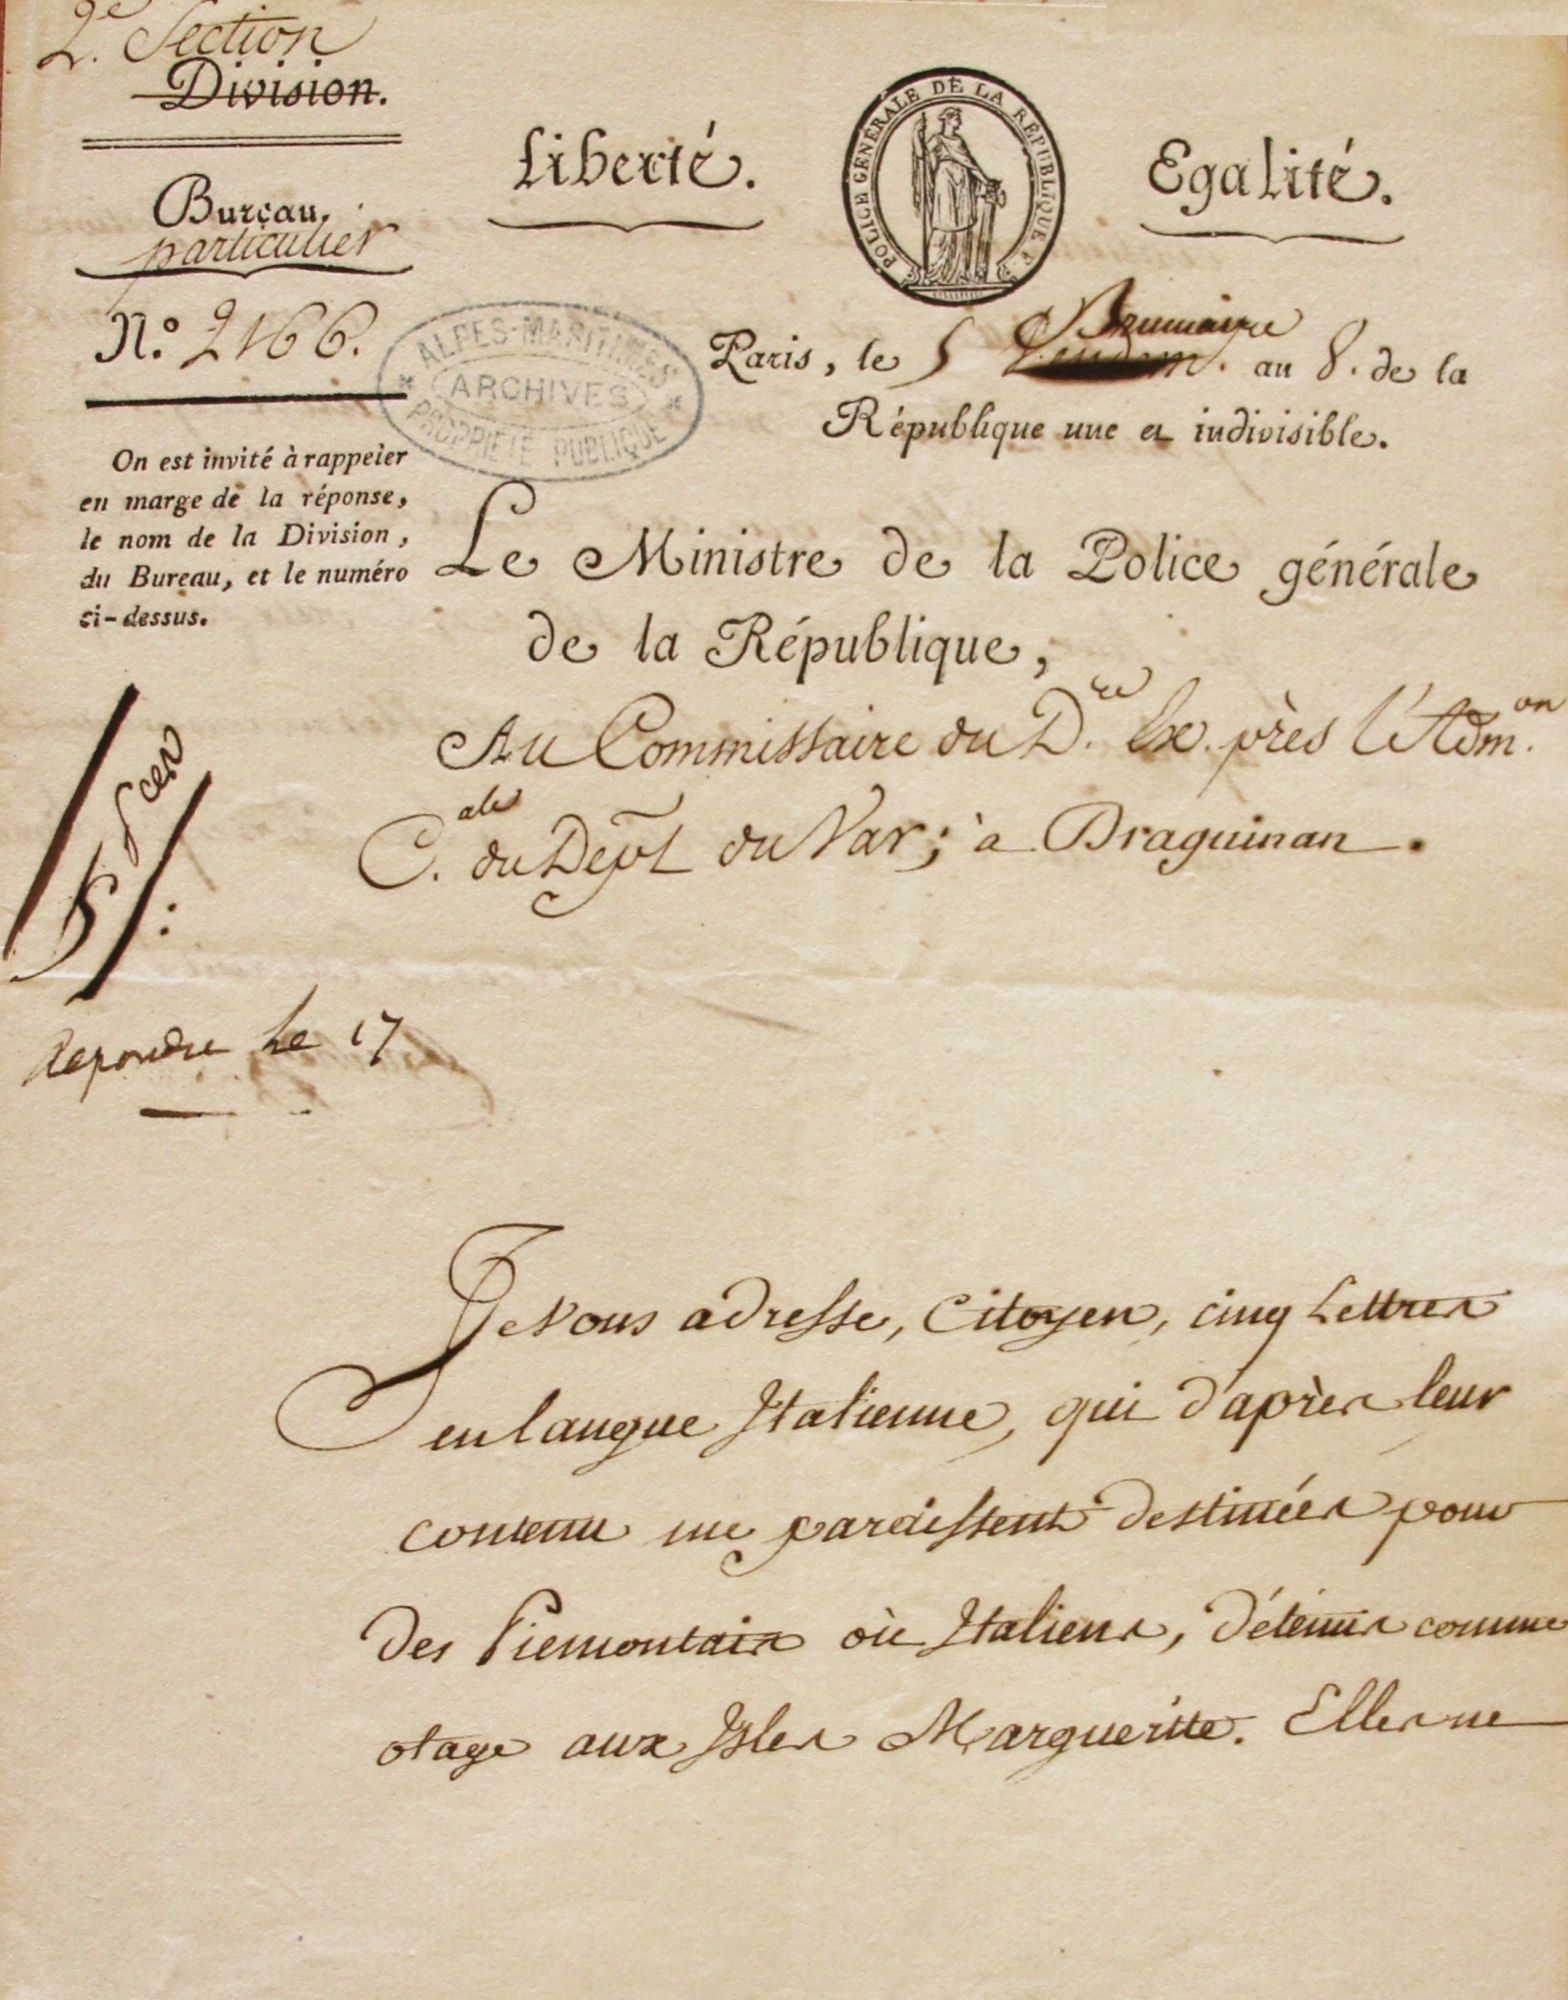 2.e Section
Division.
Bureau,
particulier
N.o 2166.
On est invité à rappeler
en marge de la réponse,
le nom de la Division,
du Bureau, et le numéro
ci-dessus.
Liberté.
POLICE GÉNÉRALE DE LA RÉPUBLIQUE F.
Egalité.
ALPES-MARITIMES
ARCHIVES
PROPRIÉTÉ PUBLIQUE
Paris, le 5 Brumaire Vendem. an 8. de la
République une et indivisible.
Le Ministre de la Police générale
de la République,
Au Commissaire du D.re Ex. près l'Adm.on
C.ale du Dept du Var; à Draguinan.
Repondu le 17
Je Vous adresse, Citoyen, cinq Lettres
en langue Italienne, qui d'après leur
contenu me paraissent destinées pour
des Piemontais où Italiens, détenus comme
otage aux Isles Marguerite. Elles ne